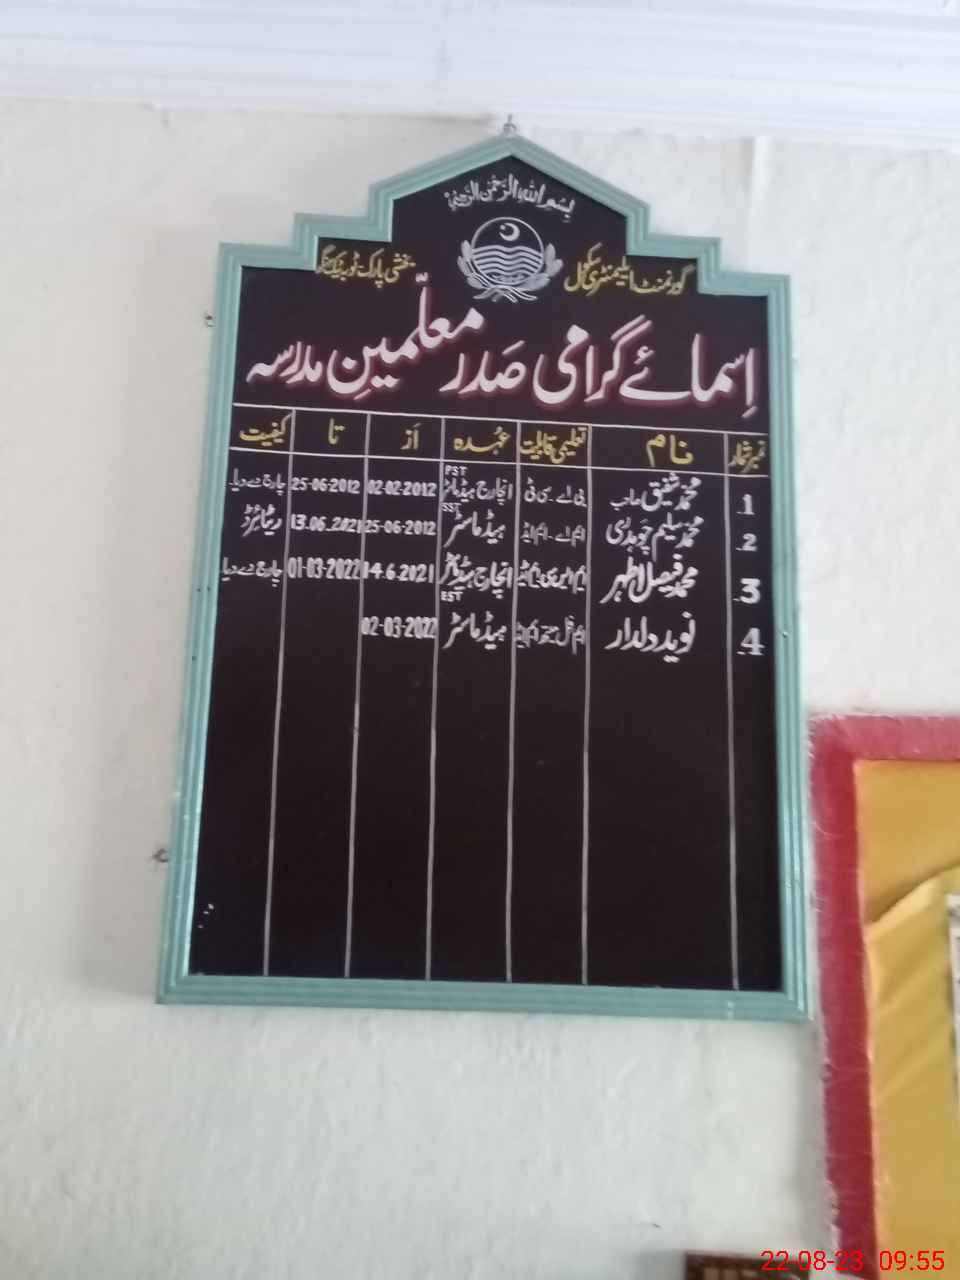 بِسْمِ اللّٰهِ الرَّحْمٰنِ الرَّحِيْمِ
گورنمنٹ ایلیمنٹری سکول بخشی پارک ٹوبہ ٹیک سنگھ
اسمائے گرامی صدر معلّمینِ مدرسہ
نمبر شمار نام تعلیمی قابلیت عُہدہ اَز تا کیفیت
1 محمد شفیق صاحب بی اے۔سی ٹی PST انچارج ہیڈماسٹر 02-02-2012 25-06-2012 چارج دے دیا۔
2 محمد سلیم چوہدری ایم اے۔ایم ایڈ SST ہیڈماسٹر 25-06-2012 13.06.2021 ریٹائرڈ
3 محمد فیصل اطہر ایم ایس سی انچارج ہیڈماسٹر EST 14.6.2021 01-03-2022 چارج دے دیا
4 نوید دلدار ایم فل ہیڈماسٹر 02-03-2022
22-08-23 09:55